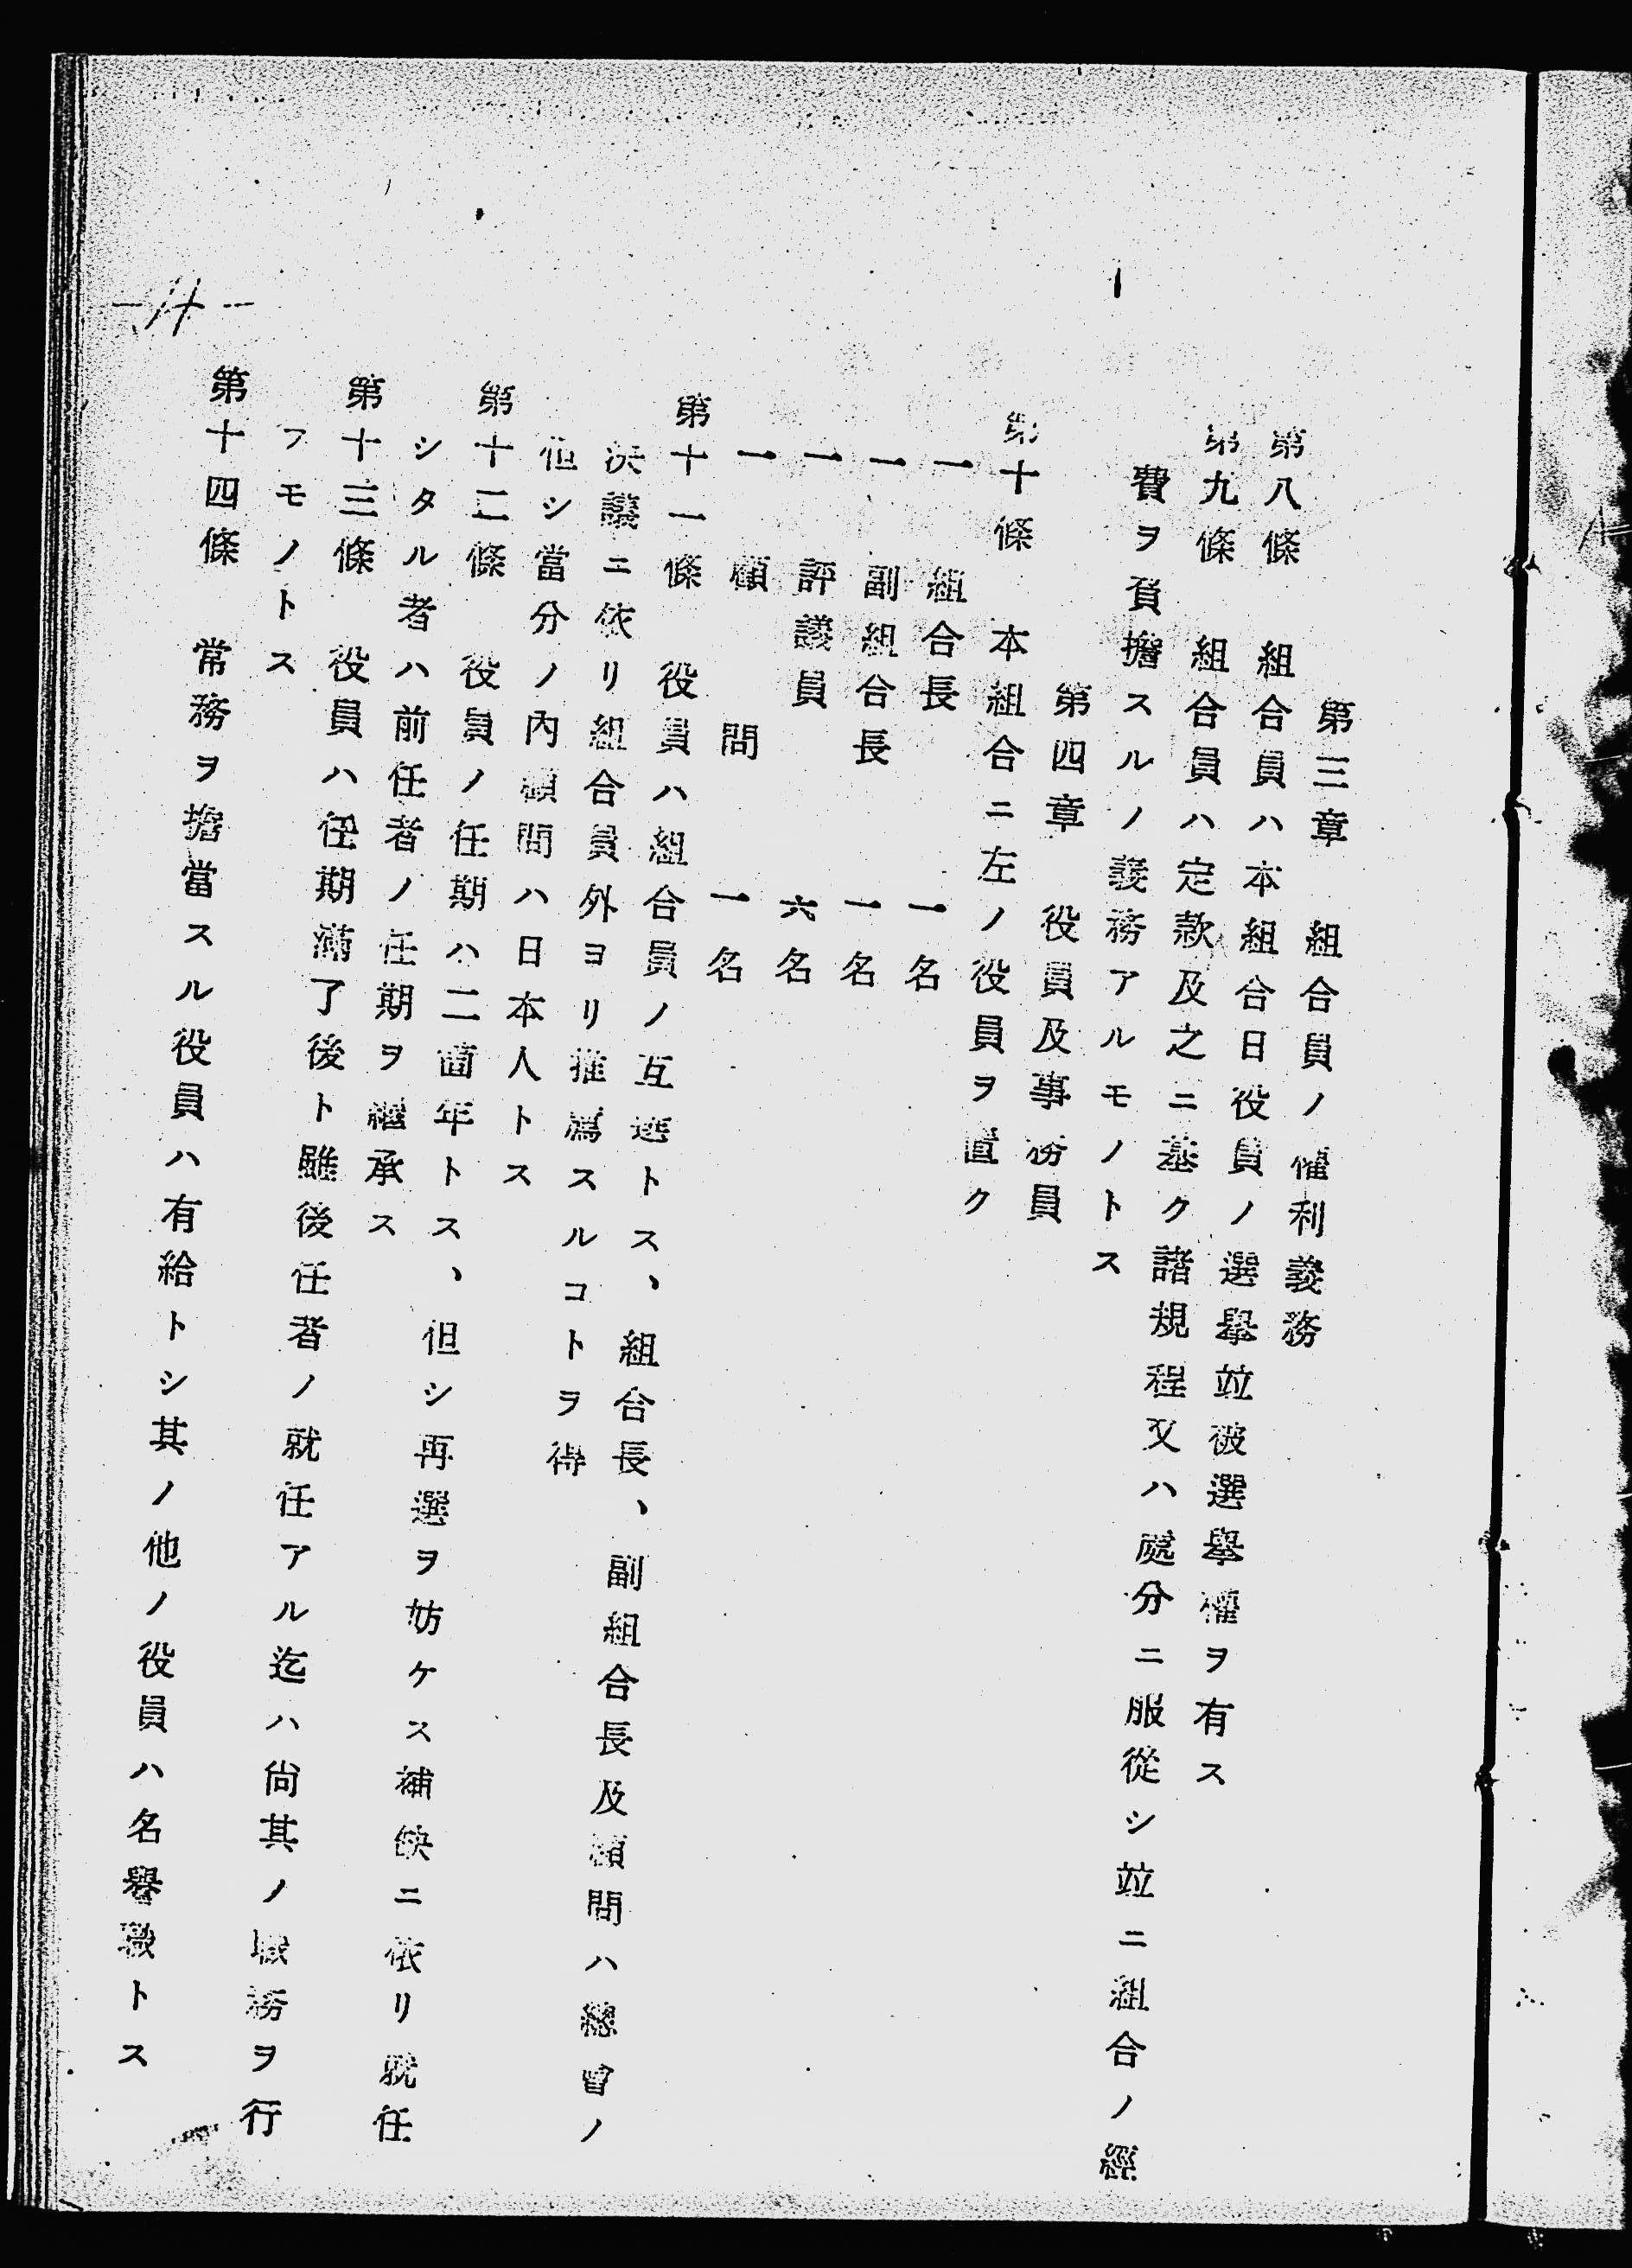 第三章　組合員ノ權利義務
第八條　組合員ハ本組合日役員ノ選擧竝被選擧權ヲ有ス
第九條　組合員ハ定款及之ニ基ク諸規程又ハ處分ニ服從シ竝ニ組合ノ經
費ヲ負擔スルノ義務アルモノトス
第四章　役員及事務員
第十條　本組合ニ左ノ役員ヲ置ク
一　組合長　一名
一　副組合長　一名
一　評議員　六名
一　顧問　一名
第十一條　役員ハ組合員ノ互選トス、組合長、副組合長及顧問ハ總會ノ
決議ニ依リ組合員外ヨリ推薦スルコトヲ得
但シ當分ノ內顧問ハ日本人トス
第十二條　役員ノ任期ハ二箇年トス、但シ再選ヲ妨ケス補缺ニ依リ就任
シタル者ハ前任者ノ任期ヲ繼承ス
第十三條　役員ハ任期滿了後ト雖後任者ノ就任アル迄ハ尙其ノ職務ヲ行
フモノトス
第十四條　常務ヲ擔當スル役員ハ有給トシ其ノ他ノ役員ハ名譽職トス